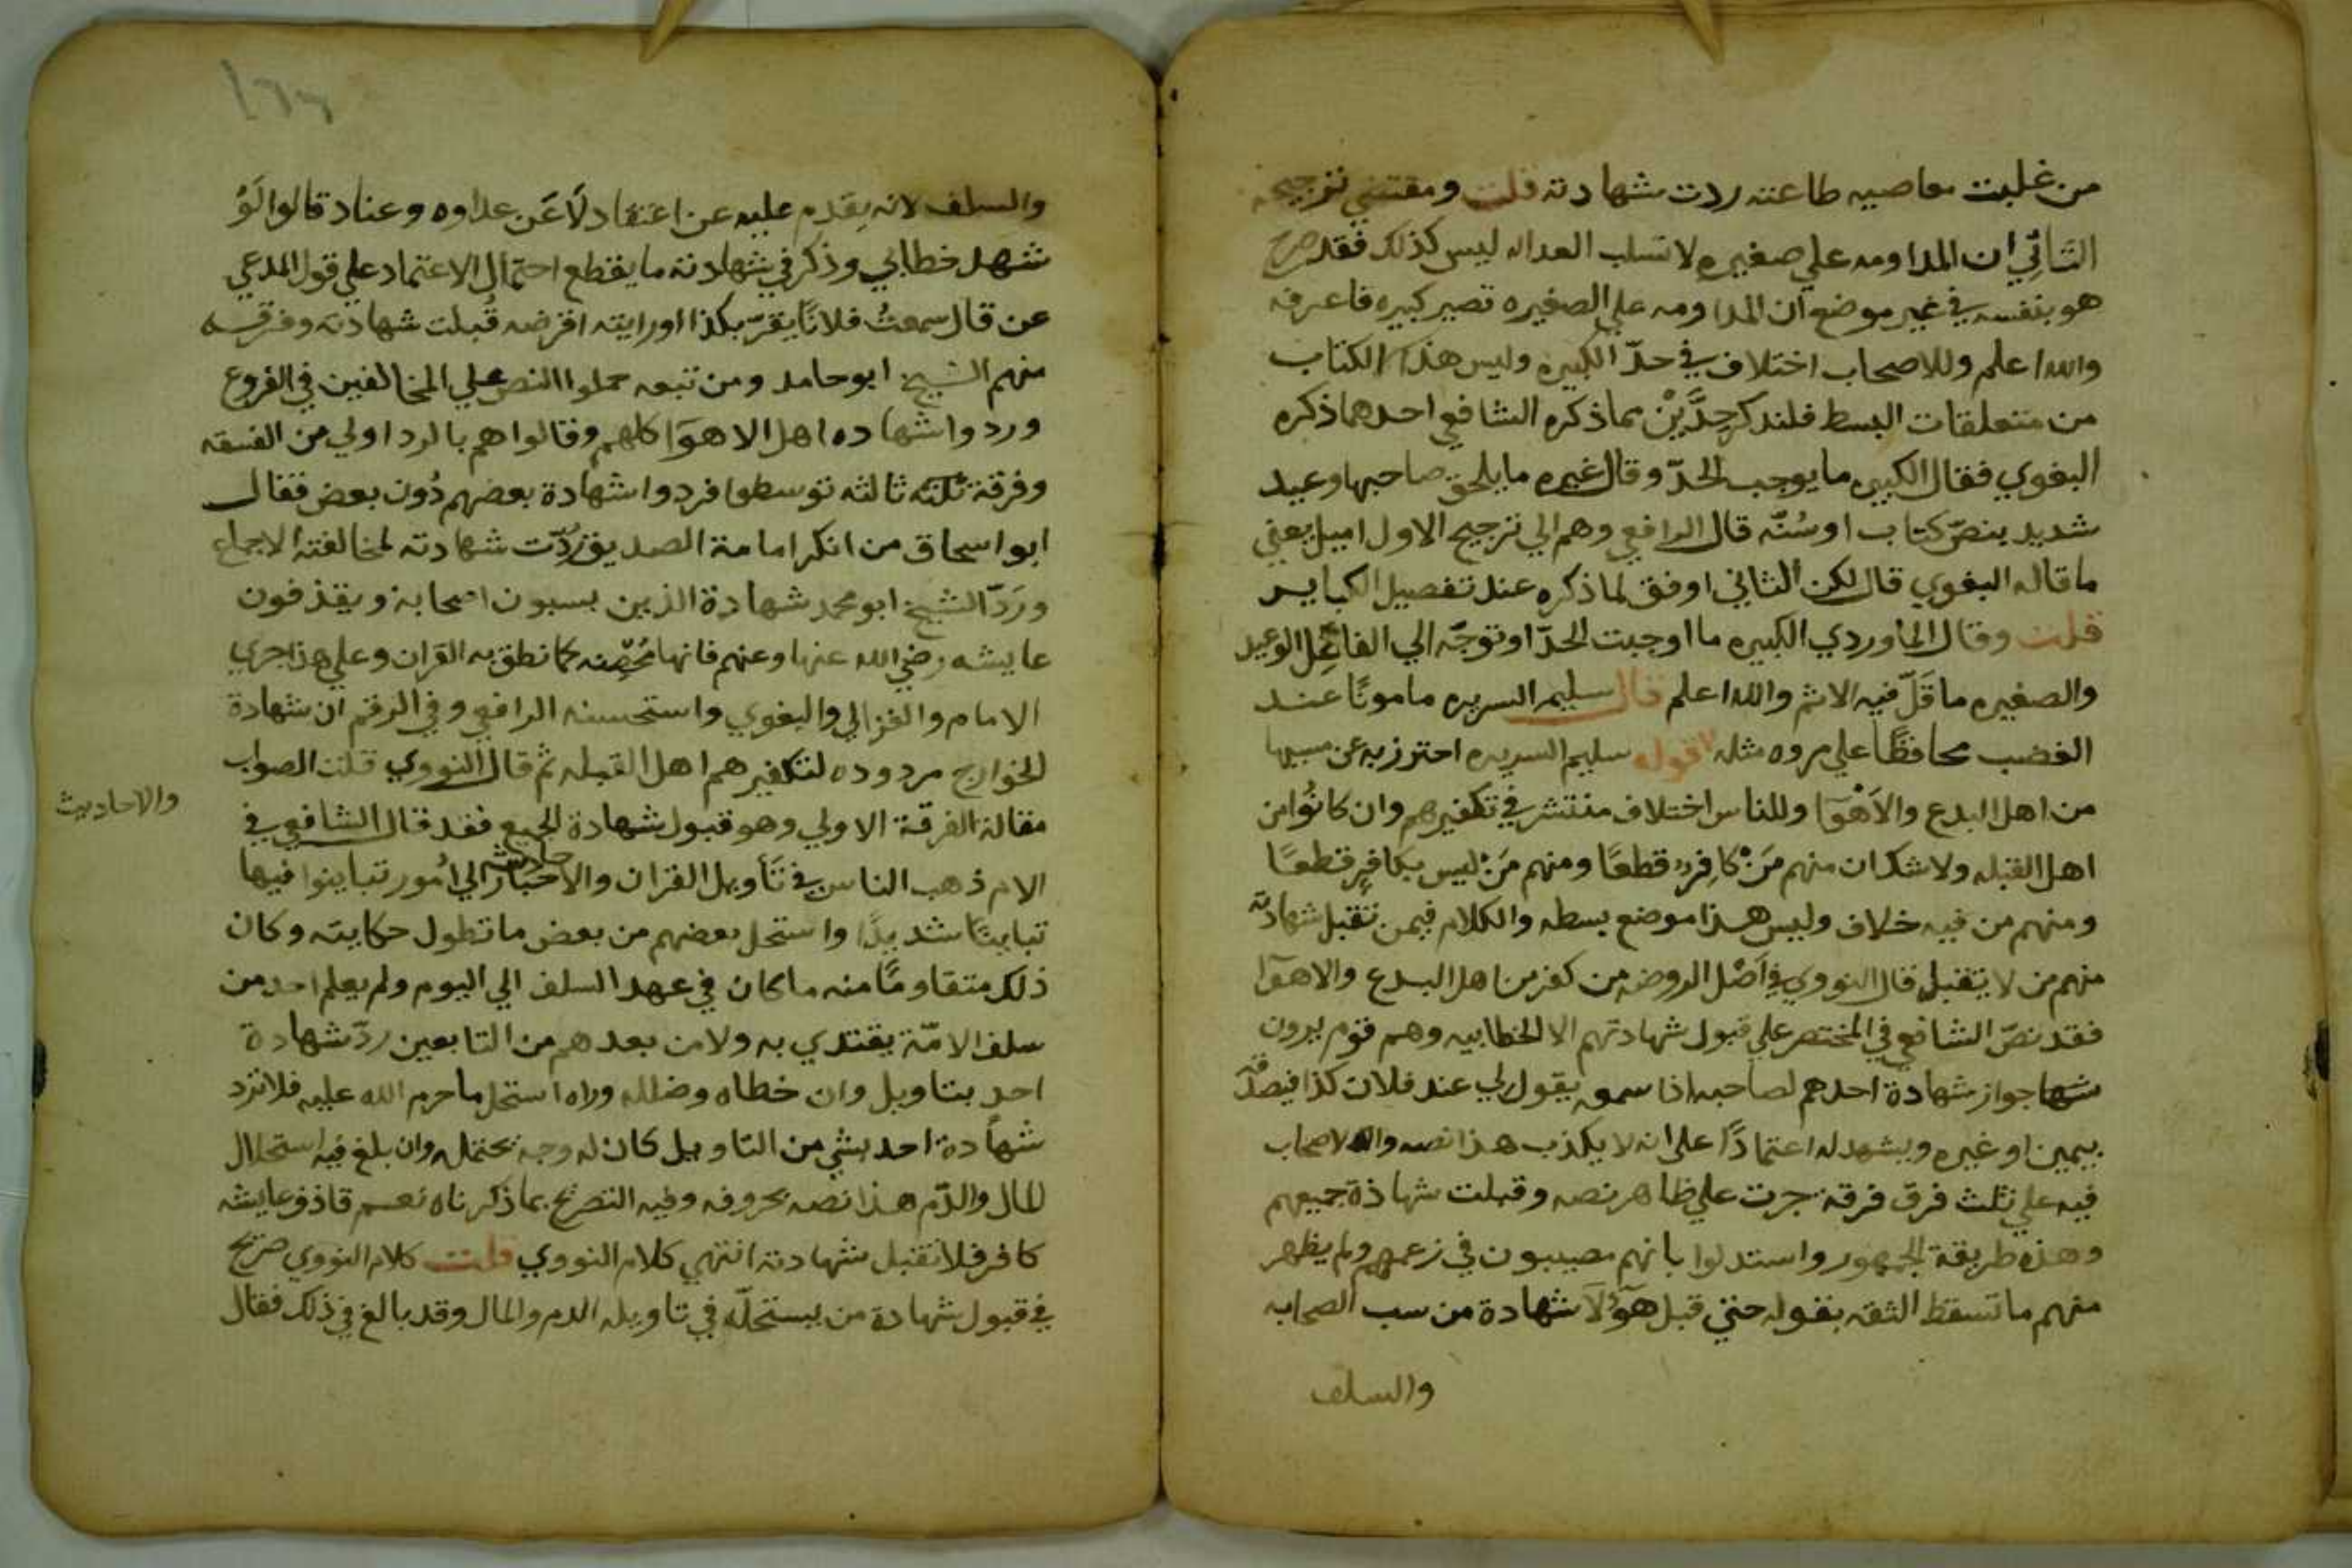 من غلبت معاصيه طاعته ردت شهادته قلت ومقتضي ترجيحه
الثاني ان المداومه علي صغيره لا تسلب العداله ليس كذلك فقد صرح
هو بنفسه في غير موضع ان المداومه علي الصغيره تصير كبيره فاعرفه
والله اعلم وللاصحاب اختلاف في حدّ الكبيره وليس هذا الكتاب
من متعلقات البسط فلنذكر حدَّيْن مما ذكره الشافعي احدهما ذكره
البغوي فقال الكبيره ما يوجب الحدّ وقال غيره ما يلحق صاحبها وعيد
شديد بنصّ كتاب او سُنّه قال الرافعي وهم الي ترجيح الاول اميل يعني
ما قاله البغوي قال لكن الثاني اوفق لما ذكره عند تفصيل الكباير
قلت وقال الماوردي الكبيره ما اوجبت الحدّ او توجّه الي الفاعل الوعيد
والصغيره ما قَلّ فيه الاثم والله اعلم قال سليم السريره مامونًا عند
الغضب محافظًا علي مروه مثله قوله سليم السريره احترز به عن مسيها
من اهل البدع والاَهْوَا وللناس اختلاف منتشر في تكفيرهم وان كانُوا من
اهل القبله ولا شك ان منهم مَنْ كافر قطعًا ومنهم مَنْ ليس بكافرٍ قطعًا
ومنهم من فيه خلاف وليس هذا موضع بسطه والكلام فيمن تقبل شهادته
منهم من لا تقبل قال النووي في اَصْل الروضه من كفر من اهل البدع والاهوَا
فقد نصّ الشافعي في المختصر علي قبول شهادتهم الا الخطابيه وهم قوم يرون
شها جواز شهادة احدهم لصاحبه اذا سمعه يقول لي عند فلان كذا فيصدّقه
بيمين او غيره ويشهد له اعتمادًا علي انه لا يكذب هذا نصه والاصحاب
فيه علي ثلث فرق فرقة جرت علي ظاهر نصه وقبلت شهادة جميعهم
وهذه طريقة الجمهور واستدلوا بانهم مصيبون في زعمهم ولم يظهر
منهم ما تسقط الثقه بقوله حتي قبل هَوُلَا شهادة من سب الصحابه
والسلف
والسلف لانه يقدم عليه عن اعتقاد لَا عَن عداوه وعناد قالوا لَوْ
شهد خطابي وذكر في شهادته ما يقطع احتمال الاعتماد علي قول المدعي
عن قال سمعتُ فلانًا يقرّ بكذا او رايته اقرضه قُبلت شهادته وفرقه
منهم الشيخ ابو حامد ومن تبعه حملوا النص علي المخالفين في الفروع
وردوا شهاده اهل الاهوَا كلهم وقالوا هم بالرد اولي من الفسقه
وفرقة ثلثه ثالثه توسطوا فردوا شهادة بعضهم دُون بعض فقال
ابو اسحاق من انكر امامة الصديق رُدّت شهادته لمخالفته الاجماع
ورَدّ الشيخ ابو محمد شهادة الذين يسبون اصحابة ويقذفون
عايشه رضي الله عنها وعنهم فانها مُحصَنه كما نطق به القران وعلي هذا جري
الامام والغزالي والبغوي واستحسنه الرافعي وفي الرقم ان شهادة
الخوارج مردوده لتكفيرهم اهل القبله ثم قال النووي قلت الصواب
مقالة الفرقة الاولي وهو قبول شهادة الجميع فقد قال الشافعي في
والاحاديث
الام ذهب الناس في تَأويل القران والاخبار حاديث الي اُمور تباينوا فيها
تباينًا شديدًا واستحل بعضهم من بعض ما تطول حكايته وكان
ذلك متقاومًا منه ما كان في عهد السلف الي اليوم ولم يعلم احد من
سلف الامّة يقتدي به ولا من بعدهم من التابعين ردّ شهادة
احد بتاويل وان خطاه وضلله وراه استحل ما حرم الله عليه فلا ترد
شهادة احد بشي من التاويل كان له وجه يحتمله وان بلغ فيه استحلال
المال والدّم هذا نصه بحروفه وفيه التصريح بما ذكرناه نعم قاذف عايشه
كافر فلا تقبل شهادته انتهي كلام النووي قلت كلام النووي صريح
في قبول شهادة من يستحلّه في تاويله الدم والمال وقد بالغ في ذلك فقال